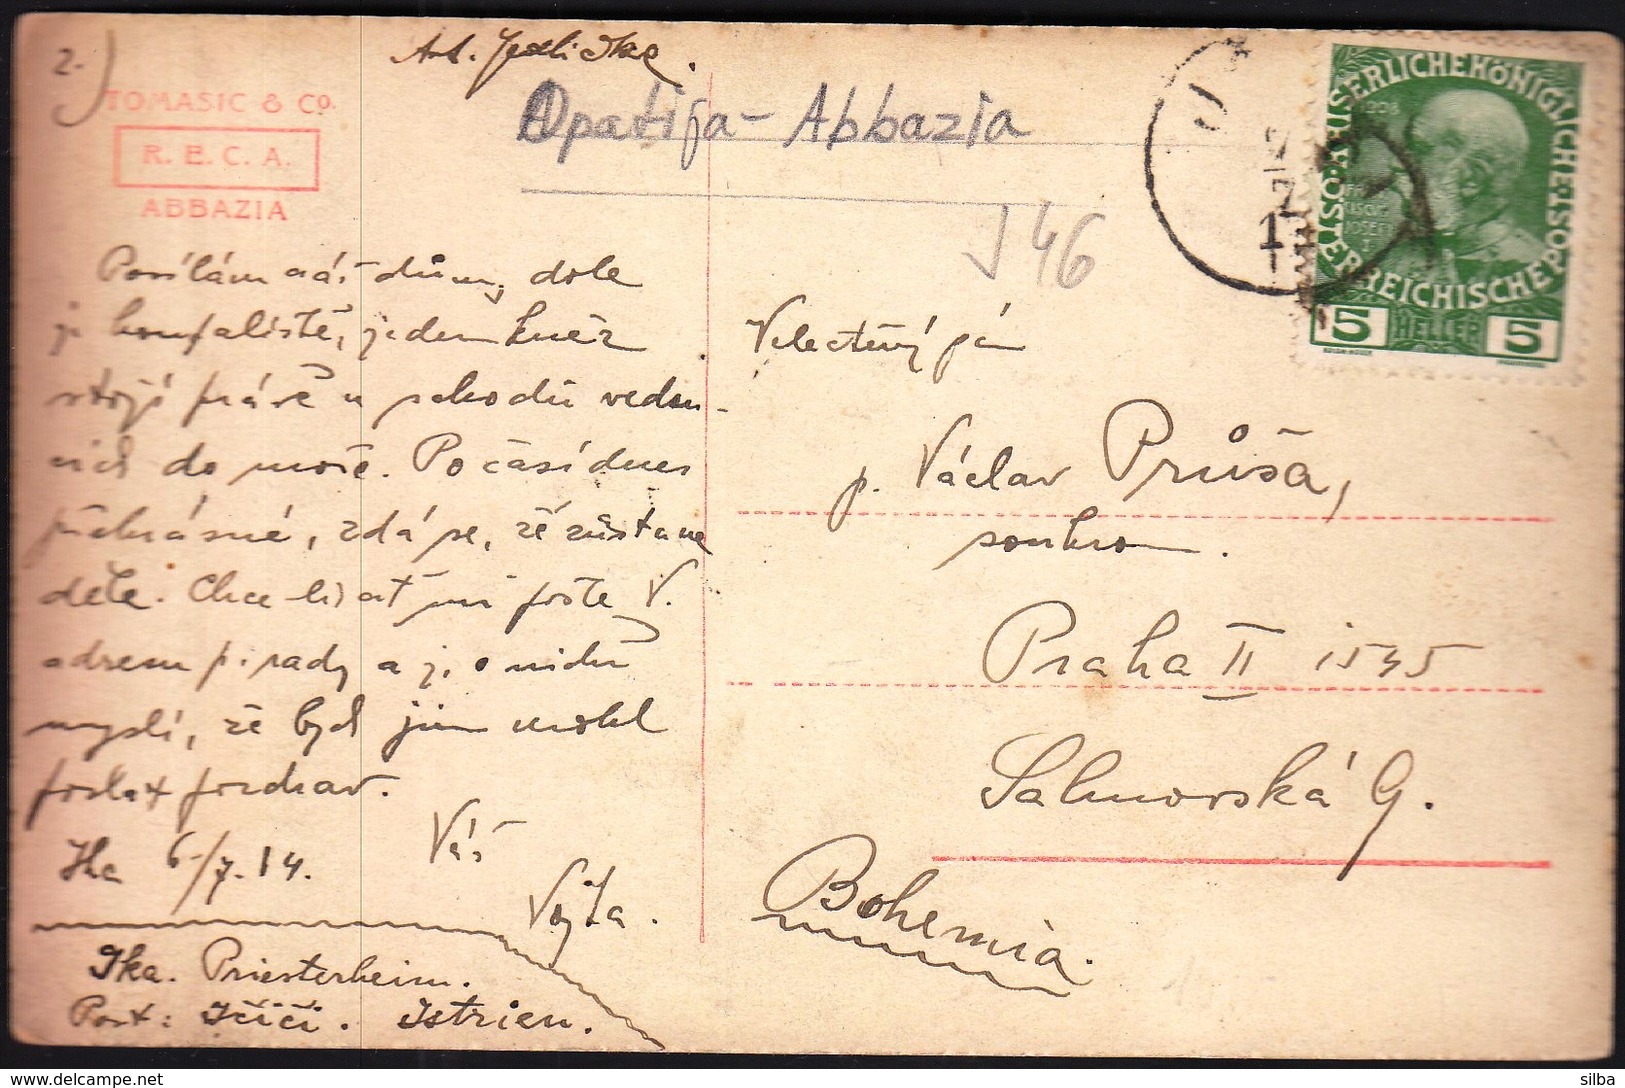 2.)
TOMASIC & Co.
R. E. C. A.
ABBAZIA
Opatija - Abbazia
J 46
KAISERLICHE KÖNIGLICHE ÖSTERREICHISCHE POST
1908
5 HELLER 5
Posílám náš dům, dole
je koupaliště, jeden kněz
stojí právě u schodů vedou-
cích do moře. Počasí dnes
překrásné, zdá se, že zůstane
déle. Chce list mi pošle V.
adresu p. rady a j. o nichž
myslí, že bych jim mohl
poslat pozdrav.
Ika 6/7. 14.
Váš
Vojta.
Ika. Priesterheim.
Post: Ičići. Istrien.
Velectěný pán
p. Václav Průša,
soukrom.
Praha II 1545
Salmovská G.
Bohemia.
silba